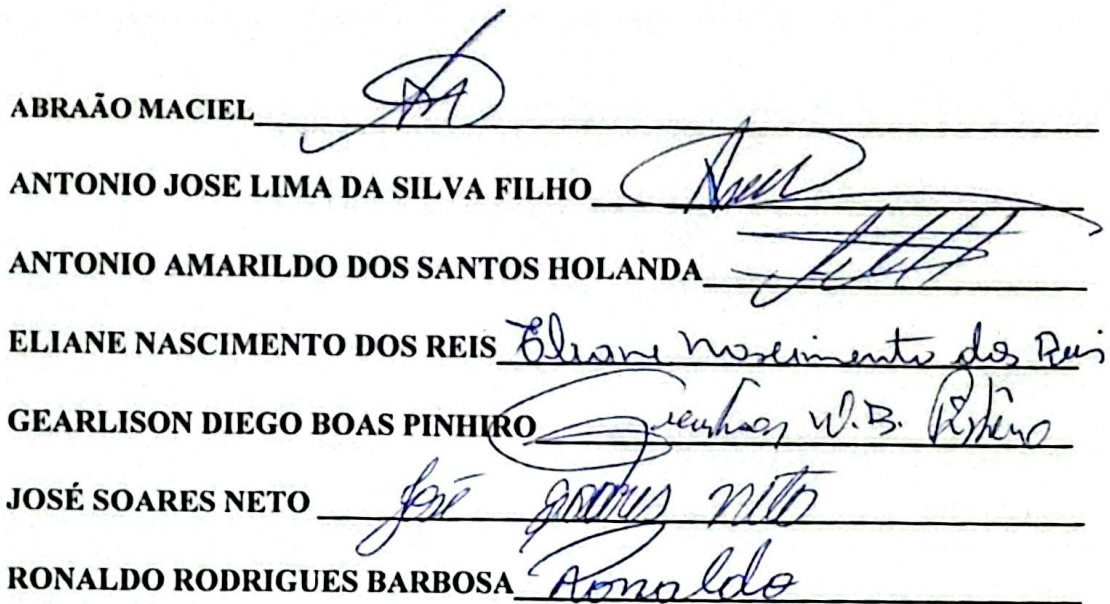 ABRAÃO MACIEL
ANTONIO JOSE LIMA DA SILVA FILHO
ANTONIO AMARILDO DOS SANTOS HOLANDA
ELIANE NASCIMENTO DOS REIS Eliane Nascimento dos Reis
GEARLISON DIEGO BOAS PINHIRO W.B.
JOSÉ SOARES NETO José Soares Neto
RONALDO RODRIGUES BARBOSA Ronaldo